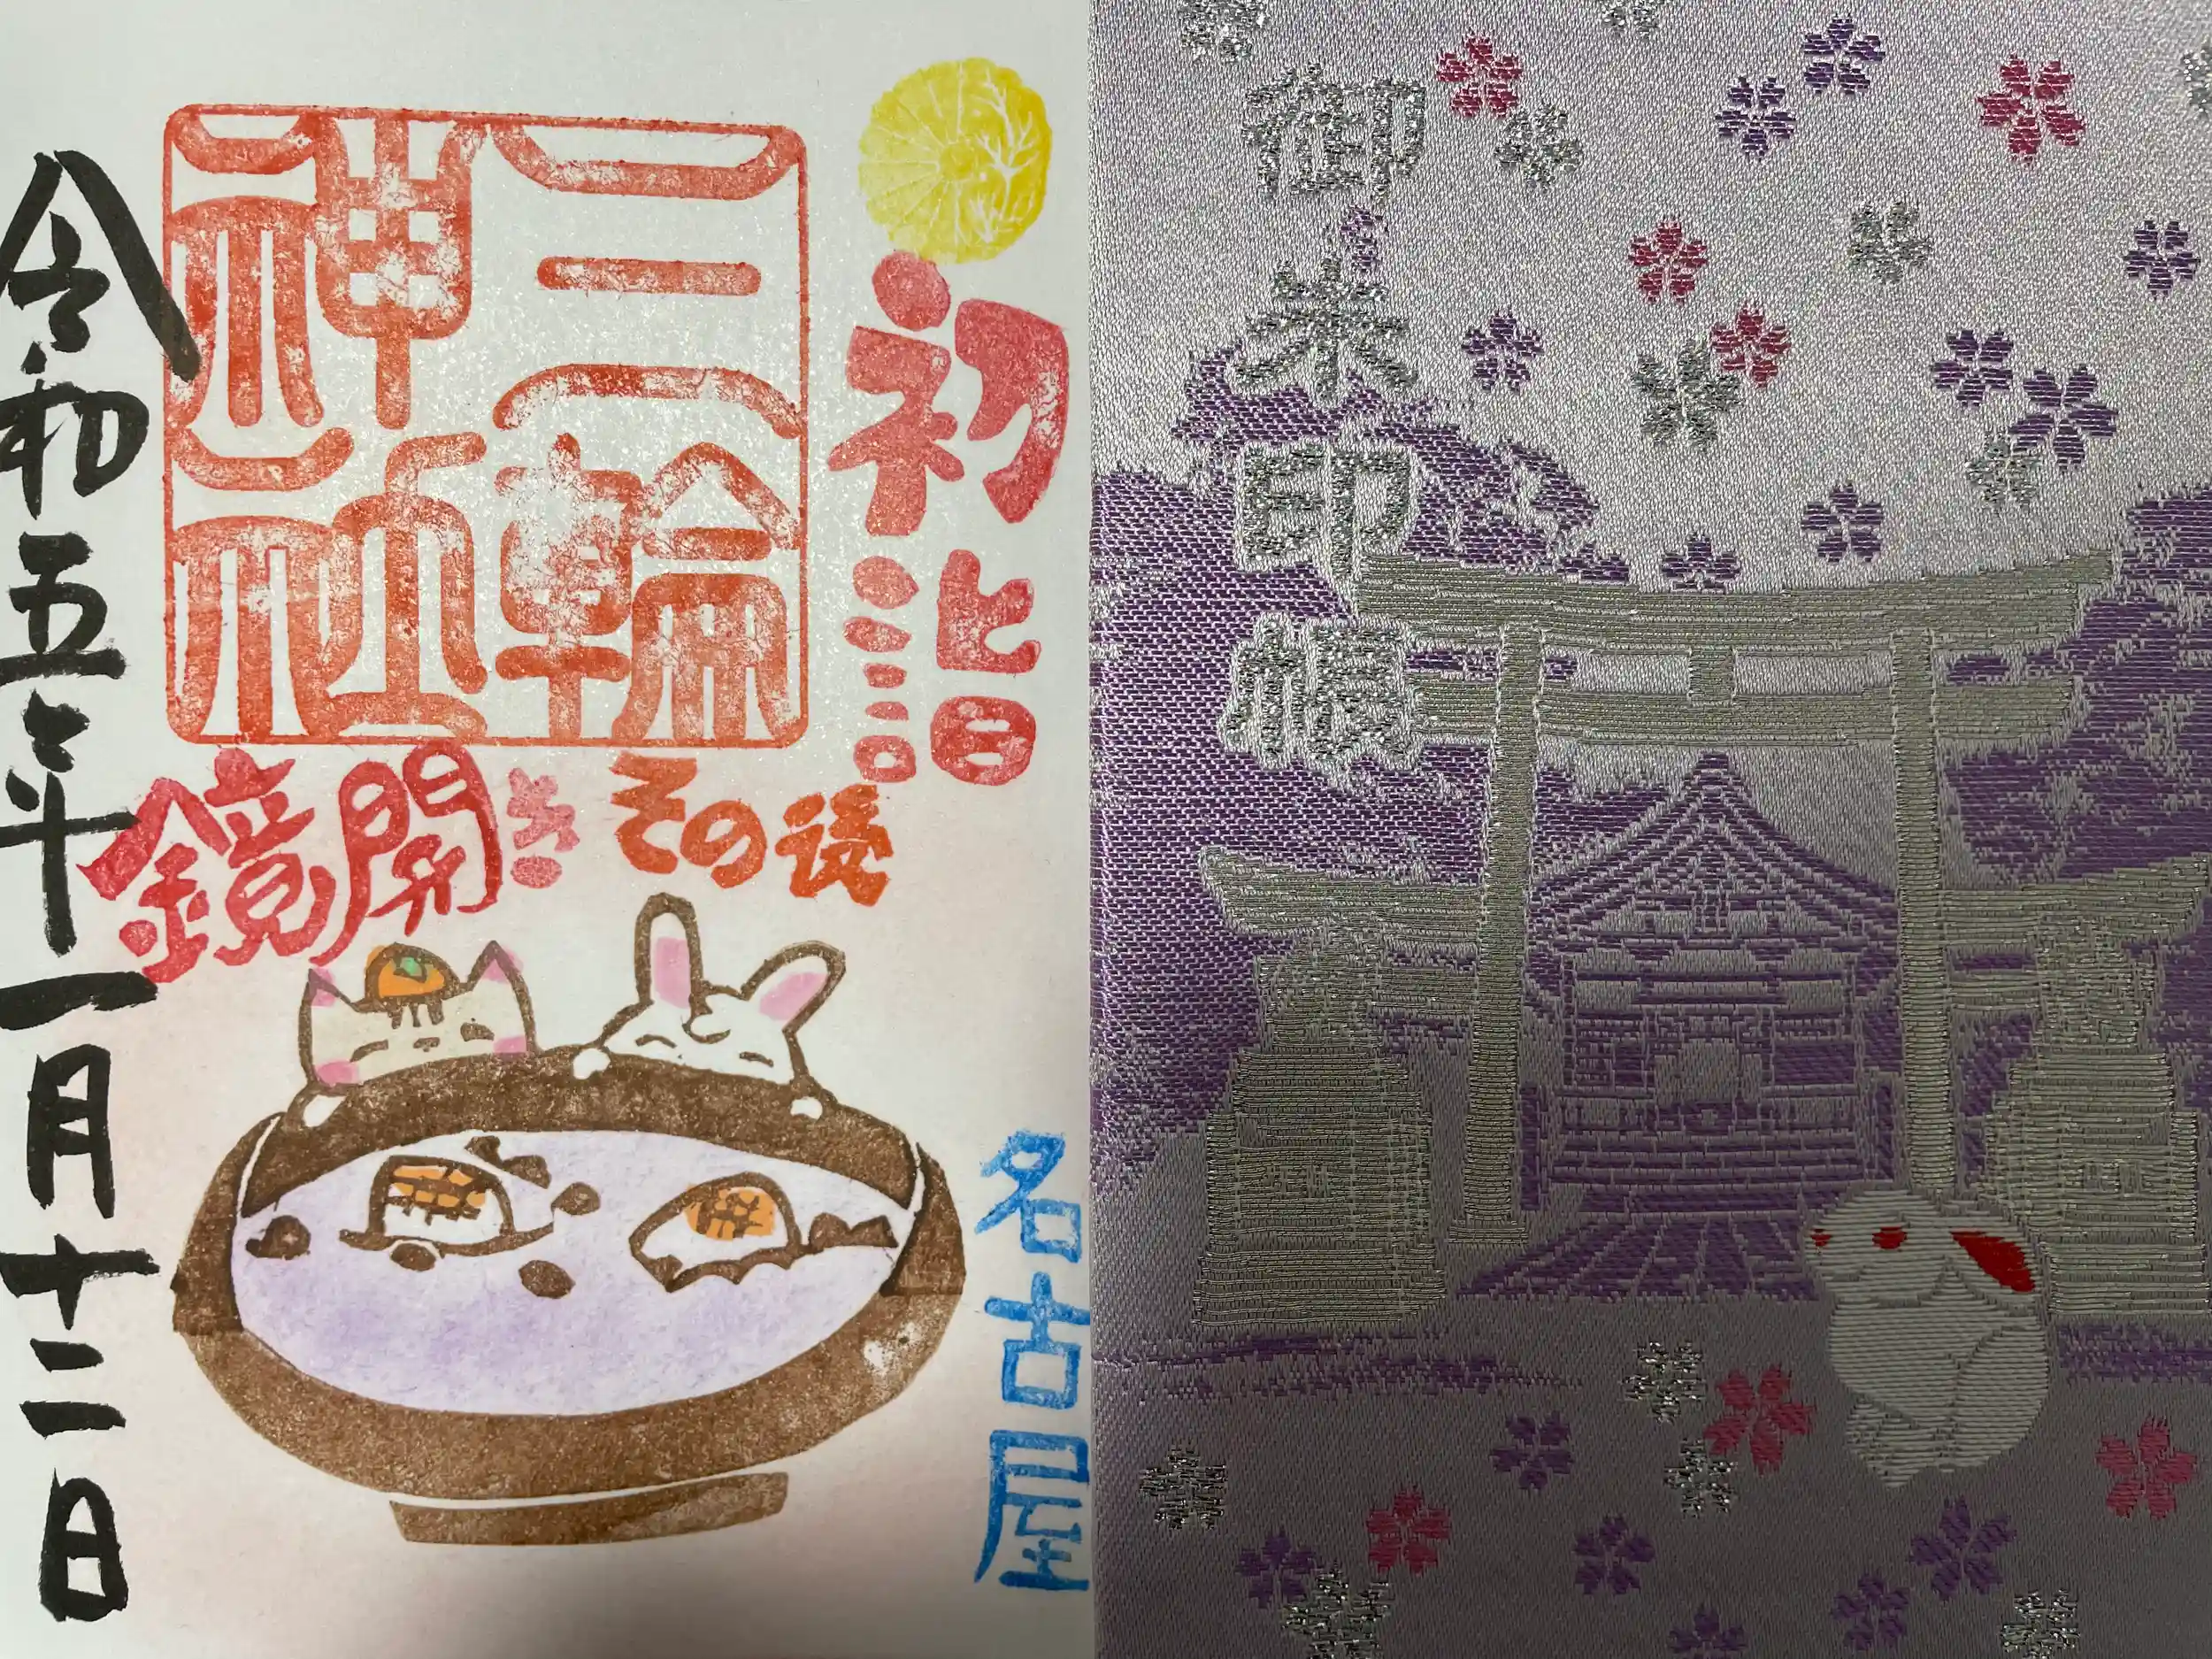 初詣
三輪
神社
その後
鏡開き
名古屋
令和五年一月十二日
御朱印帳